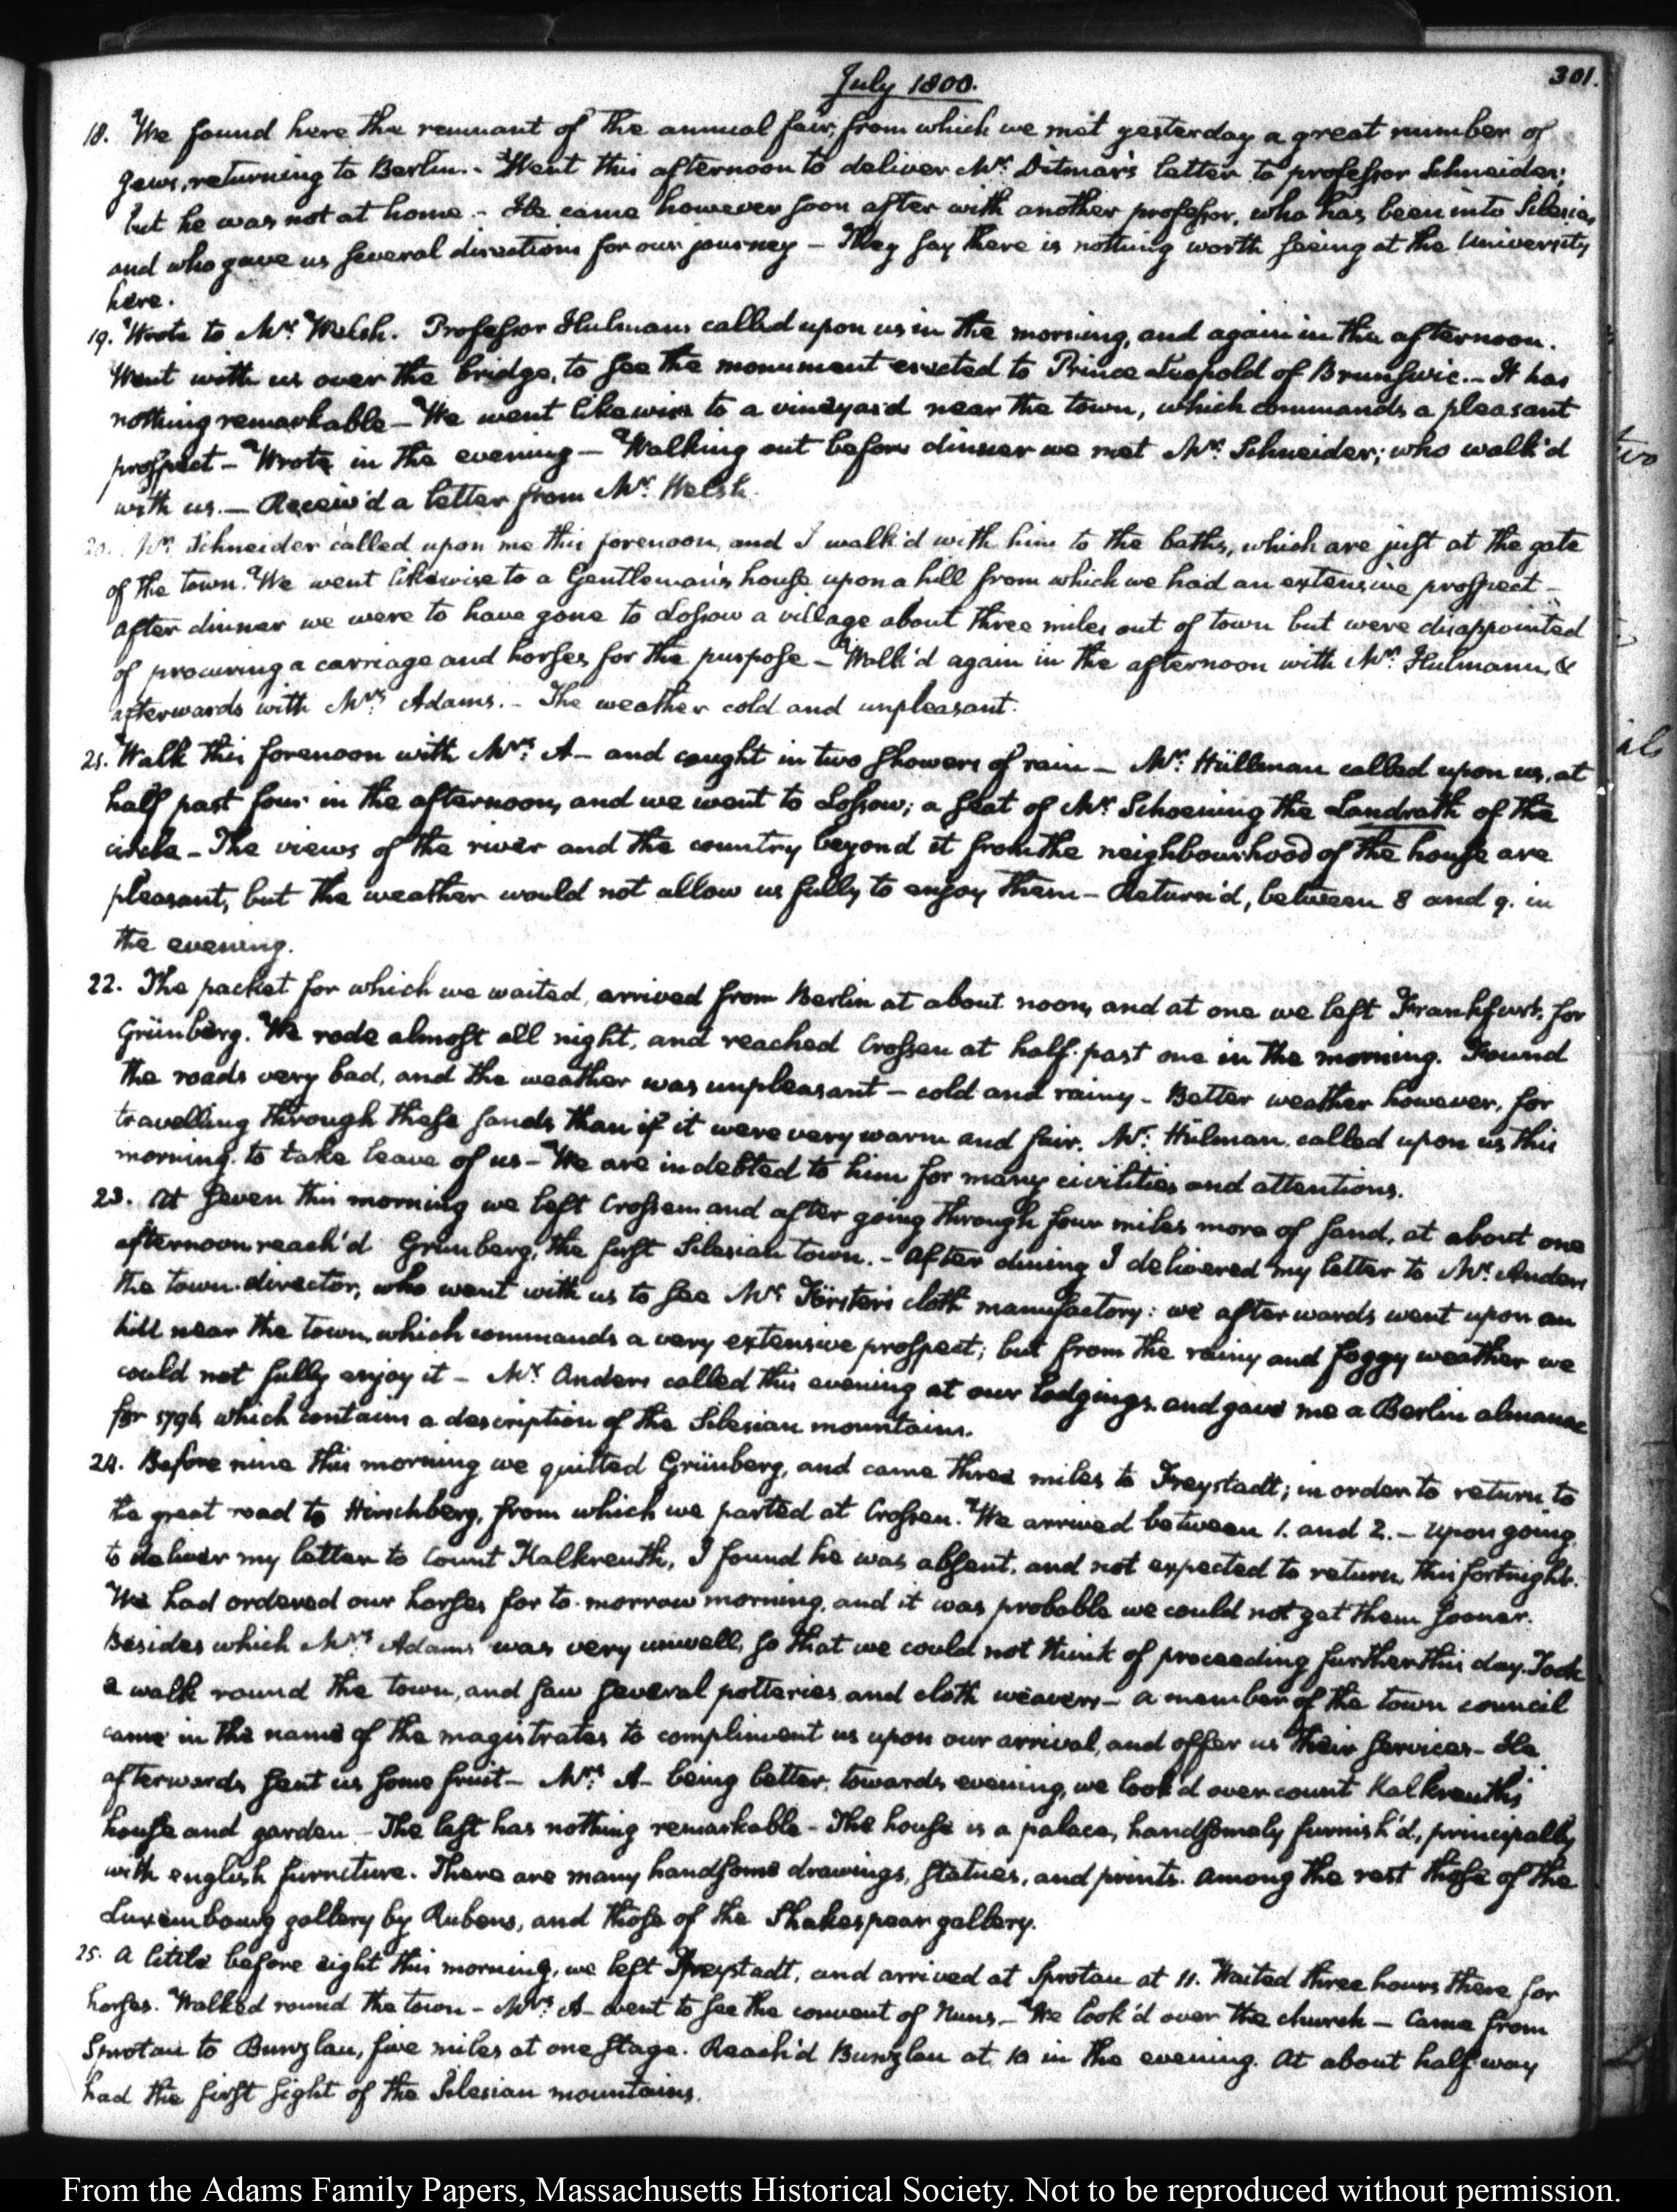 July 1800.
301.
18. We found here the remnant of the annual fair, from which we met yesterday a great number of
Jews, returning to Berlin. - Went this afternoon to deliver Mr. Ditmar's letter to professor Schneider;
but he was not at home. - He came however soon after with another professor, who has been into Silesia,
and who gave us several directions for our journey - They say there is nothing worth seeing at the University
here.
19. Wrote to Mr. Welsh. Professor Hulmann called upon us in the morning, and again in the afternoon.
Went with us over the bridge, to see the monument erected to Prince Leopold of Brunswic. - It has
nothing remarkable - We went likewise to a vineyard near the town, which commands a pleasant
prospect - Wrote in the evening - Walking out before dinner we met Mr. Schneider; who walk'd
with us. - Receiv'd a letter from Mr. Welsh.
20. Mr. Schneider called upon me this forenoon, and I walk'd with him to the baths, which are just at the gate
of the town. We went likewise to a Gentleman's house upon a hill from which we had an extensive prospect -
After dinner we were to have gone to Lossow a village about three miles out of town but were disappointed
of procuring a carriage and horses for the purpose - Walk'd again in the afternoon with Mr. Hulmann, &
afterwards with Mrs. Adams. - The weather cold and unpleasant.
21. Walk this forenoon with Mrs. A- and caught in two showers of rain - Mr. Hüllman called upon us, at
half past four in the afternoon, and we went to Lossow; a seat of Mr. Schoening the Landrath of the
circle - The views of the river and the country beyond it from the neighbourhood of the house are
pleasant, but the weather would not allow us fully to enjoy them - Return'd, between 8 and 9. in
the evening.
22. The packet for which we waited, arrived from Berlin at about noon, and at one we left Frankfurt, for
Grünberg. We rode almost all night, and reached Crossen at half past one in the morning. Found
the roads very bad, and the weather was unpleasant - cold and rainy - Better weather however, for
travelling through these sands than if it were very warm and fair. Mr. Hülman called upon us this
morning to take leave of us - We are indebted to him for many civilities and attentions.
23. At seven this morning we left Crossen and after going through four miles more of sand, at about one
afternoon reach'd Grünberg, the first Silesian town. - After dining I delivered my letter to Mr. Anders
the town-director, who went with us to see Mr. Försters cloth manufactory: we afterwards went upon an
hill near the town, which commands a very extensive prospect; but from the rainy and foggy weather we
could not fully enjoy it - Mr. Anders called this evening at our lodgings, and gave me a Berlin almanac
for 1796 which contains a description of the Silesian mountains.
24. Before nine this morning we quitted Grünberg, and came three miles to Freystadt; in order to return to
the great road to Hirschberg, from which we parted at Crossen. We arrived between 1. and 2. - Upon going
to deliver my letter to Count Kalkreuth, I found he was absent, and not expected to return, this fortnight.
We had ordered our horses for to-morrow morning, and it was probable we could not get them sooner.
Besides which Mrs. Adams was very unwell, so that we could not think of proceeding further this day. Took
a walk round the town, and saw several potteries and cloth weavers - a member of the town council
came in the name of the magistrates to compliment us upon our arrival, and offer us their services - He
afterwards sent us some fruit - Mrs. A- being better, towards evening, we look'd over count Kalkreuth's
house and garden - The last has nothing remarkable - The house is a palace, handsomely furnish'd, principally
with english furniture. There are many handsome drawings, statues, and prints. Among the rest those of the
Luxembourg gallery by Rubens, and those of the Shakespear gallery.
25. A little before eight this morning, we left Freystadt, and arrived at Sprotau at 11. Waited three hours there for
horses. Walked round the town - Mrs. A- went to see the convent of Nuns - We look'd over the church - Came from
Sprotau to Bunzlau, five miles at one stage. Reach'd Bunzlau at 10 in the evening. At about half way
had the first sight of the Silesian mountains.
From the Adams Family Papers, Massachusetts Historical Society. Not to be reproduced without permission.